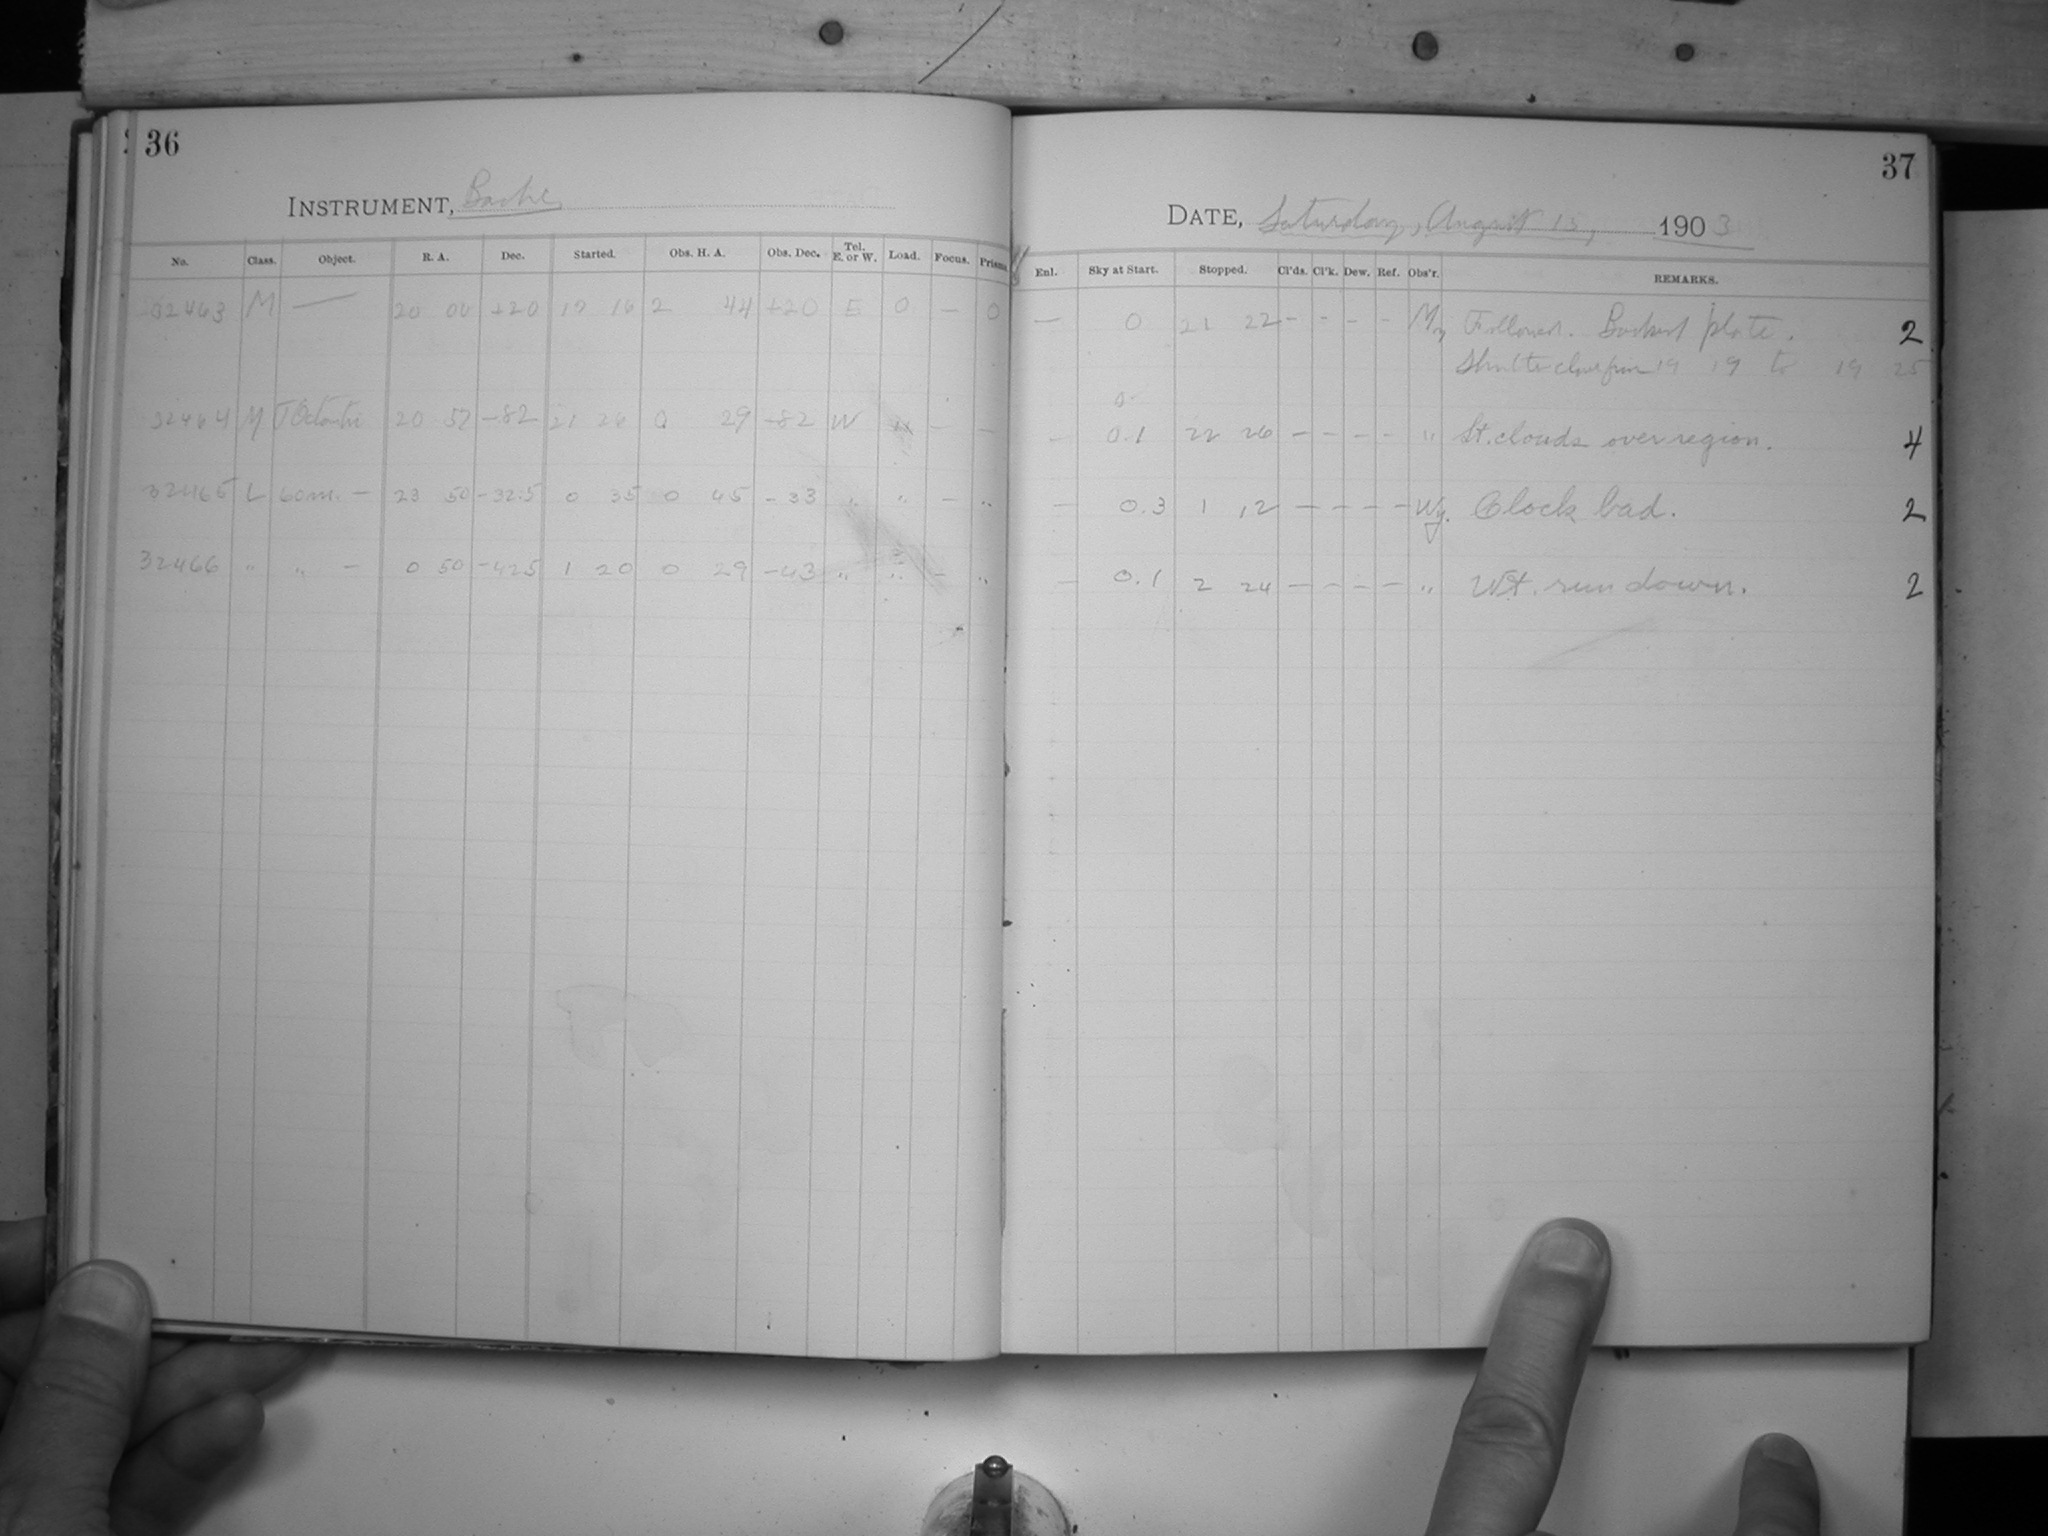 36
INSTRUMENT, Bache
No. Class. Object. R. A. Dec. Started. Obs. H. A. Obs. Dec. Tel. E. or W. Load. Focus. Prisms
32463 M — 20 00 +20 19 16 2 44 +20 E 0 — 0
32464 M T Octantis 20 57 -82 21 26 0 29 -82 W — —
32465 L 60m. — 23 50 -32.5 0 35 0 45 -33 " " — "
32466 " " — 0 50 -42.5 1 20 0 29 -43 " " — "
37
DATE, Saturday, August 15, 1903
Enl. Sky at Start. Stopped. Cl'ds. Cl'k. Dew. Ref. Obs'r. REMARKS.
— 0 21 22 - - - - Followed. plate. 2
Shutter closed from 19 19 to 19 25
- 0.1 22 26 - - - - " St. clouds over region. 4
- 0.3 1 12 - - - - Wy. Clock bad. 2
- 0.1 2 24 - - - - " Wt. run down. 2